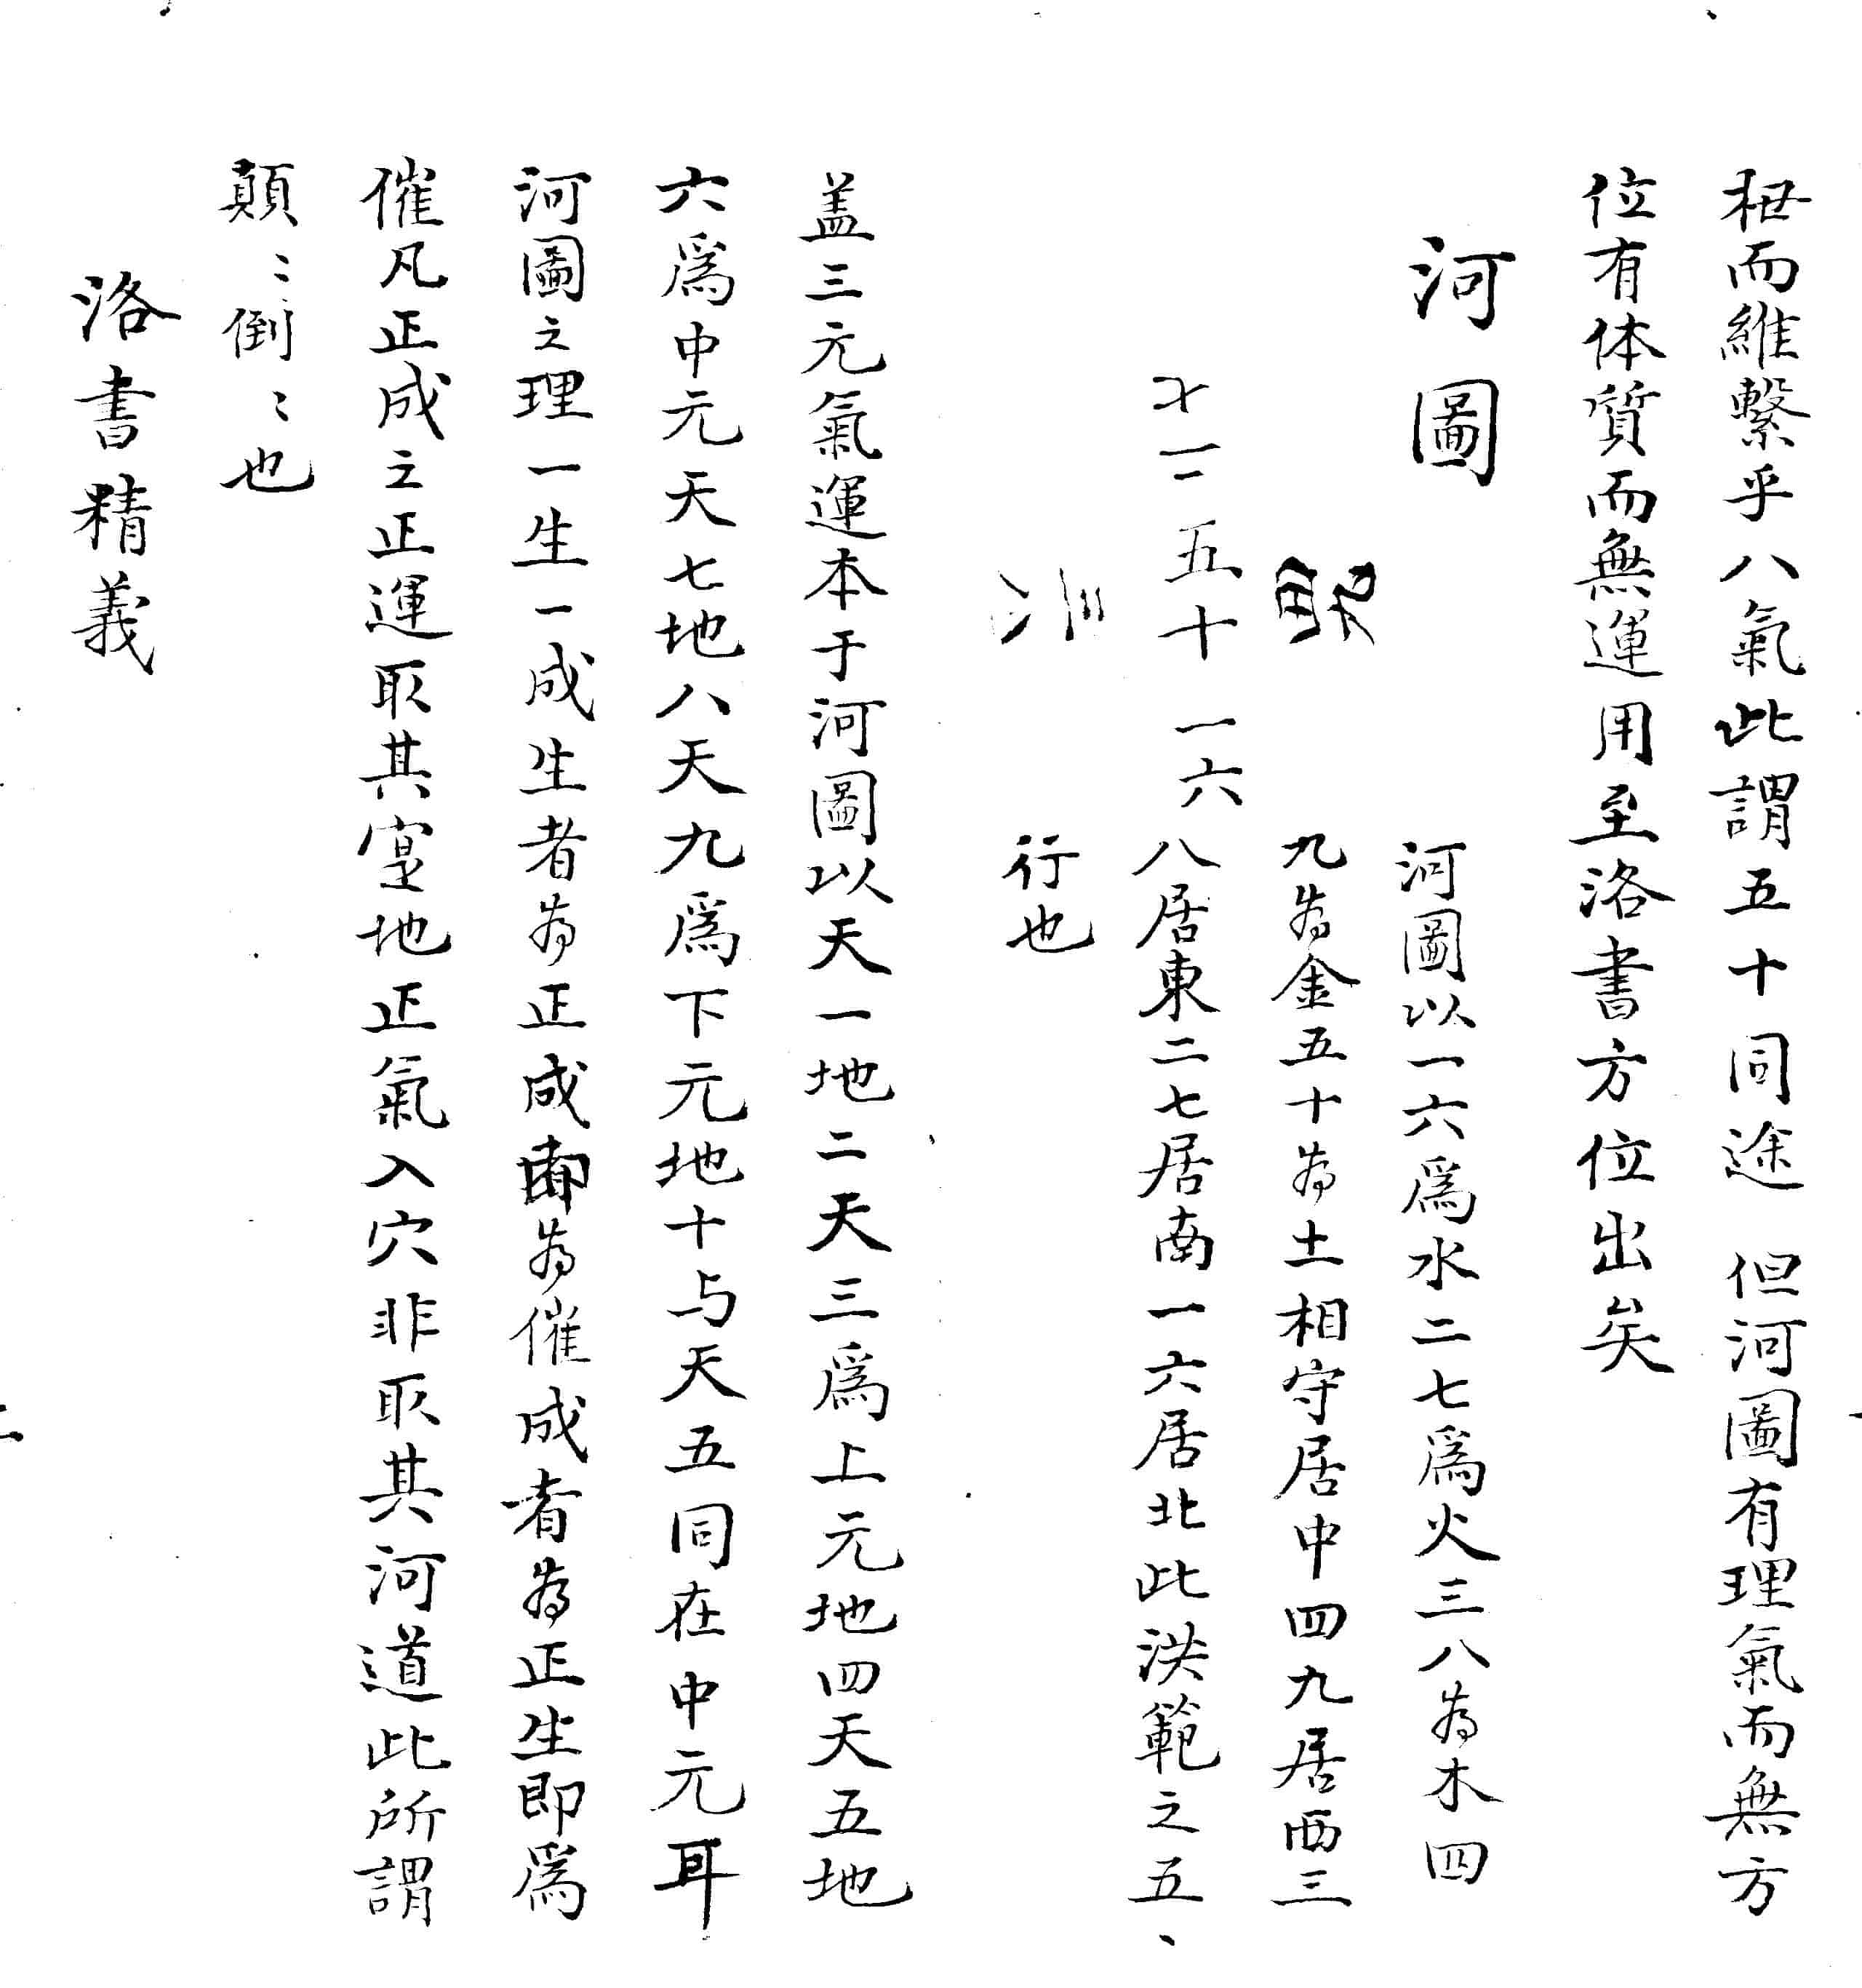 枻而維繫乎八氣此謂五十同途 但河圖有理氣而無方
位有体質而無運用至洛書方位出矣
河圖
五十 一六
河圖以一六爲水二七爲火三八为木四
九为金五十为土相守居中四九居西三
八居東二七居南一六居北此洪範之五、
行也
盖三元氣運本于河圖以天一地二天三爲上元地四天五地
六爲中元天七地八天九爲下元地十与天五同在中元耳
河圖之理一生一成生者为正成即为催成者为正生即爲
催凡正成之正運取其寔地正氣入穴非取其河道此所謂
顛〻倒〻也
洛書精義